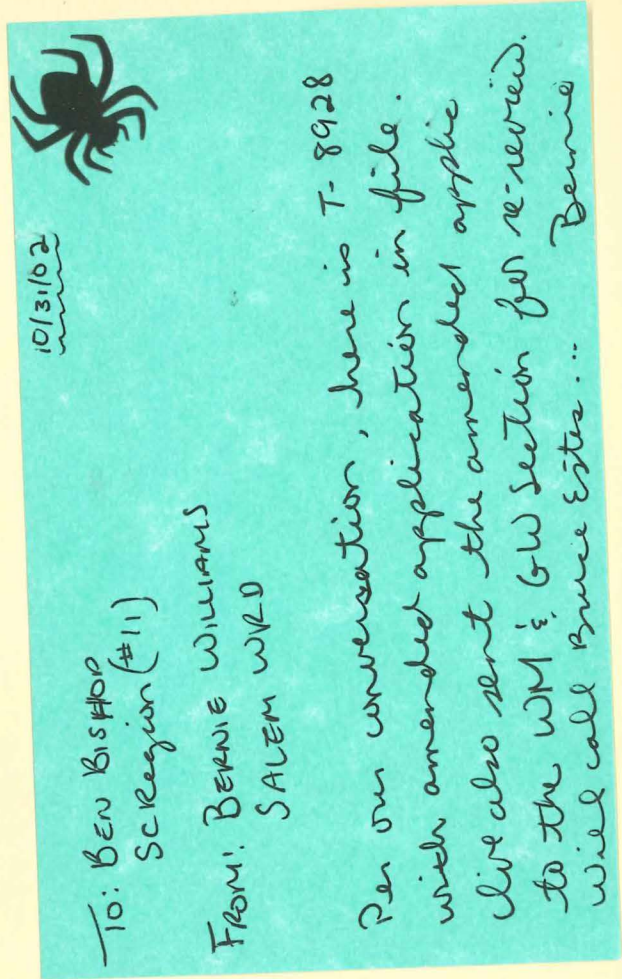 10/31/02
To: BEN BISHOP
SC Region (#11)
FROM: BERNIE WILLIAMS
SALEM WRD
Per our conversation, here is T-8928
with amended application in file.
I've also sent the amended applic
to the WM & GW Section for re-review.
Will call Bruce Estes...
Bernie